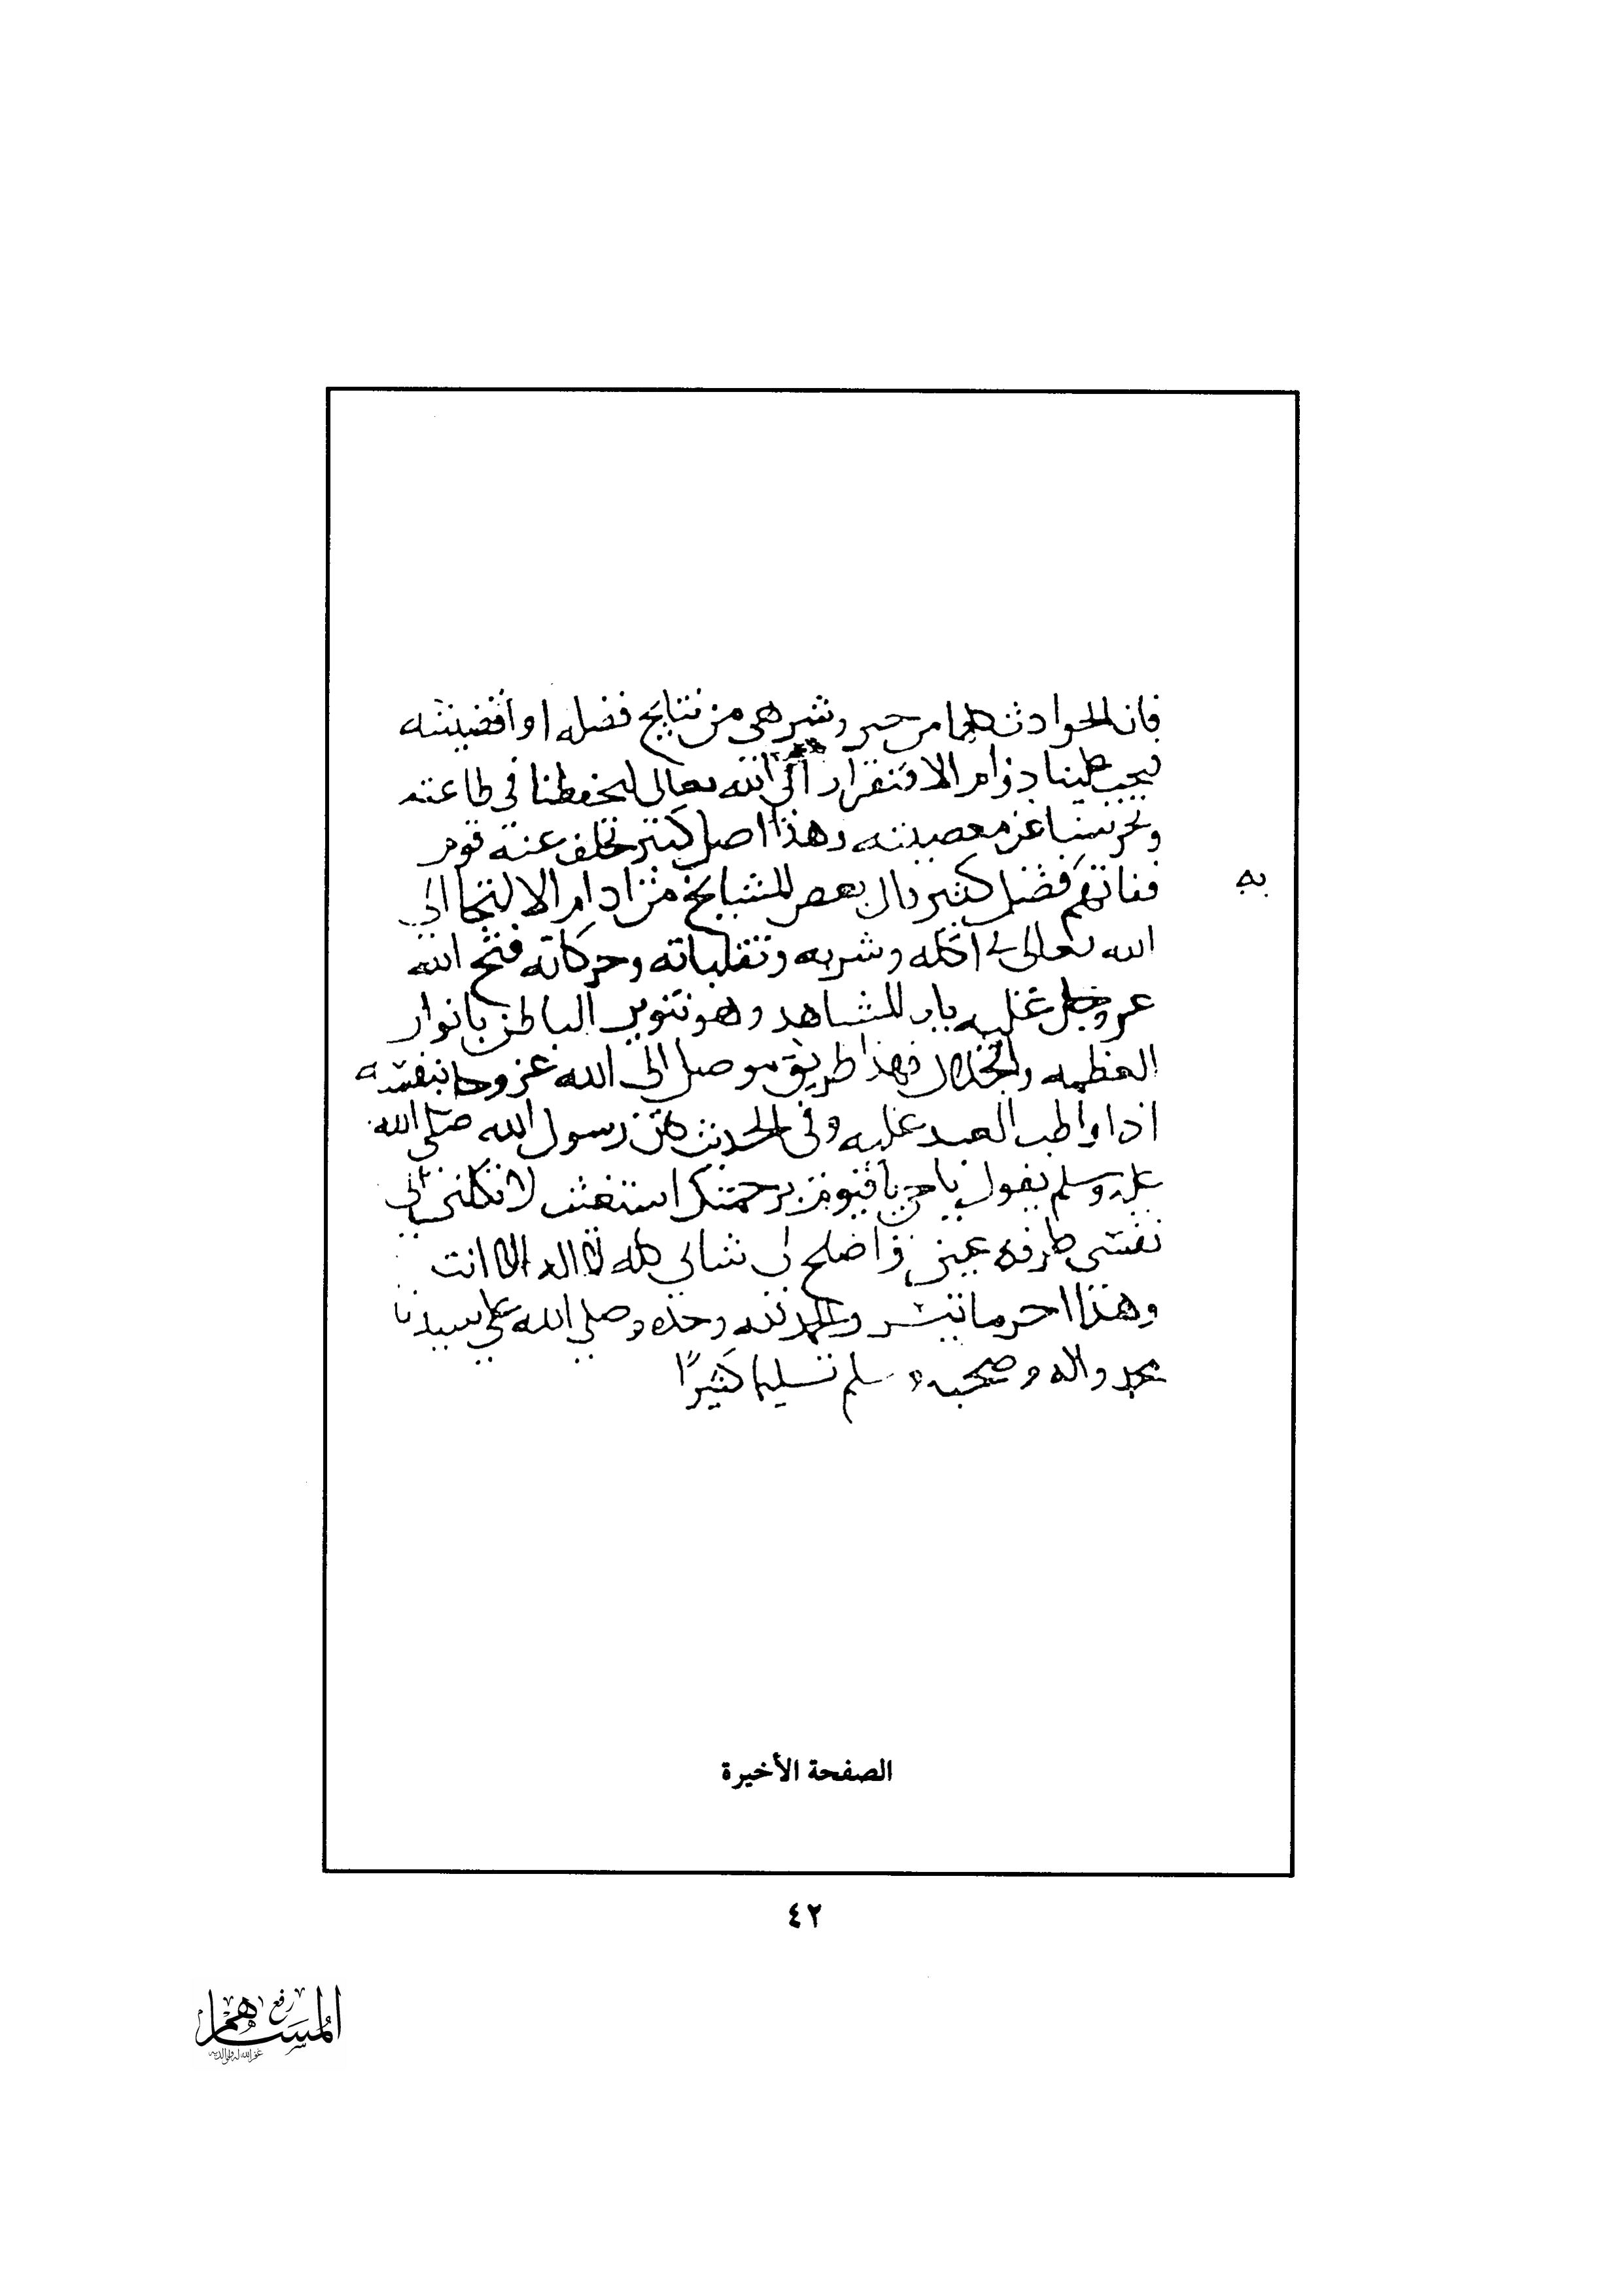 فان الحوادث كلها من خير وشر هي من نتايج فضله او اقضيته
فيجب علينا دوام الافتقار الى الله تعالى ليحفظنا في طاعته
ويحرسنا عن معصيته وهذا اصل كبير تخلف عنه قوم
ففاتهم فضل كثير قال بعض المشايخ من ادام الالتجا الى
به
الله تعالى في اكله وشربه وتقلباته وحركاته فتح الله
عز وجل عليه باب المشاهد وهو تنوير الباطن بانوار
العظمه والجلال فهذا طريق موصل الى الله عز وجل بنفسه
اذا واظب العبد عليه وفي الحديث كان رسول الله صلى الله
عليه وسلم يقول يا حي يا قيوم برحمتك استغيث لا تكلني الى
نفسي طرفة عين واصلح لي شاني كله لا اله الا انت
وهذا اخر ما تيسر والحمد لله وحده وصلي الله علي سيدنا
محمد واله وصحبه وسلم تسليما كثيرًا
الصفحة الأخيرة
٤٢
رفع
المساهم
غفر الله له ولوالديه